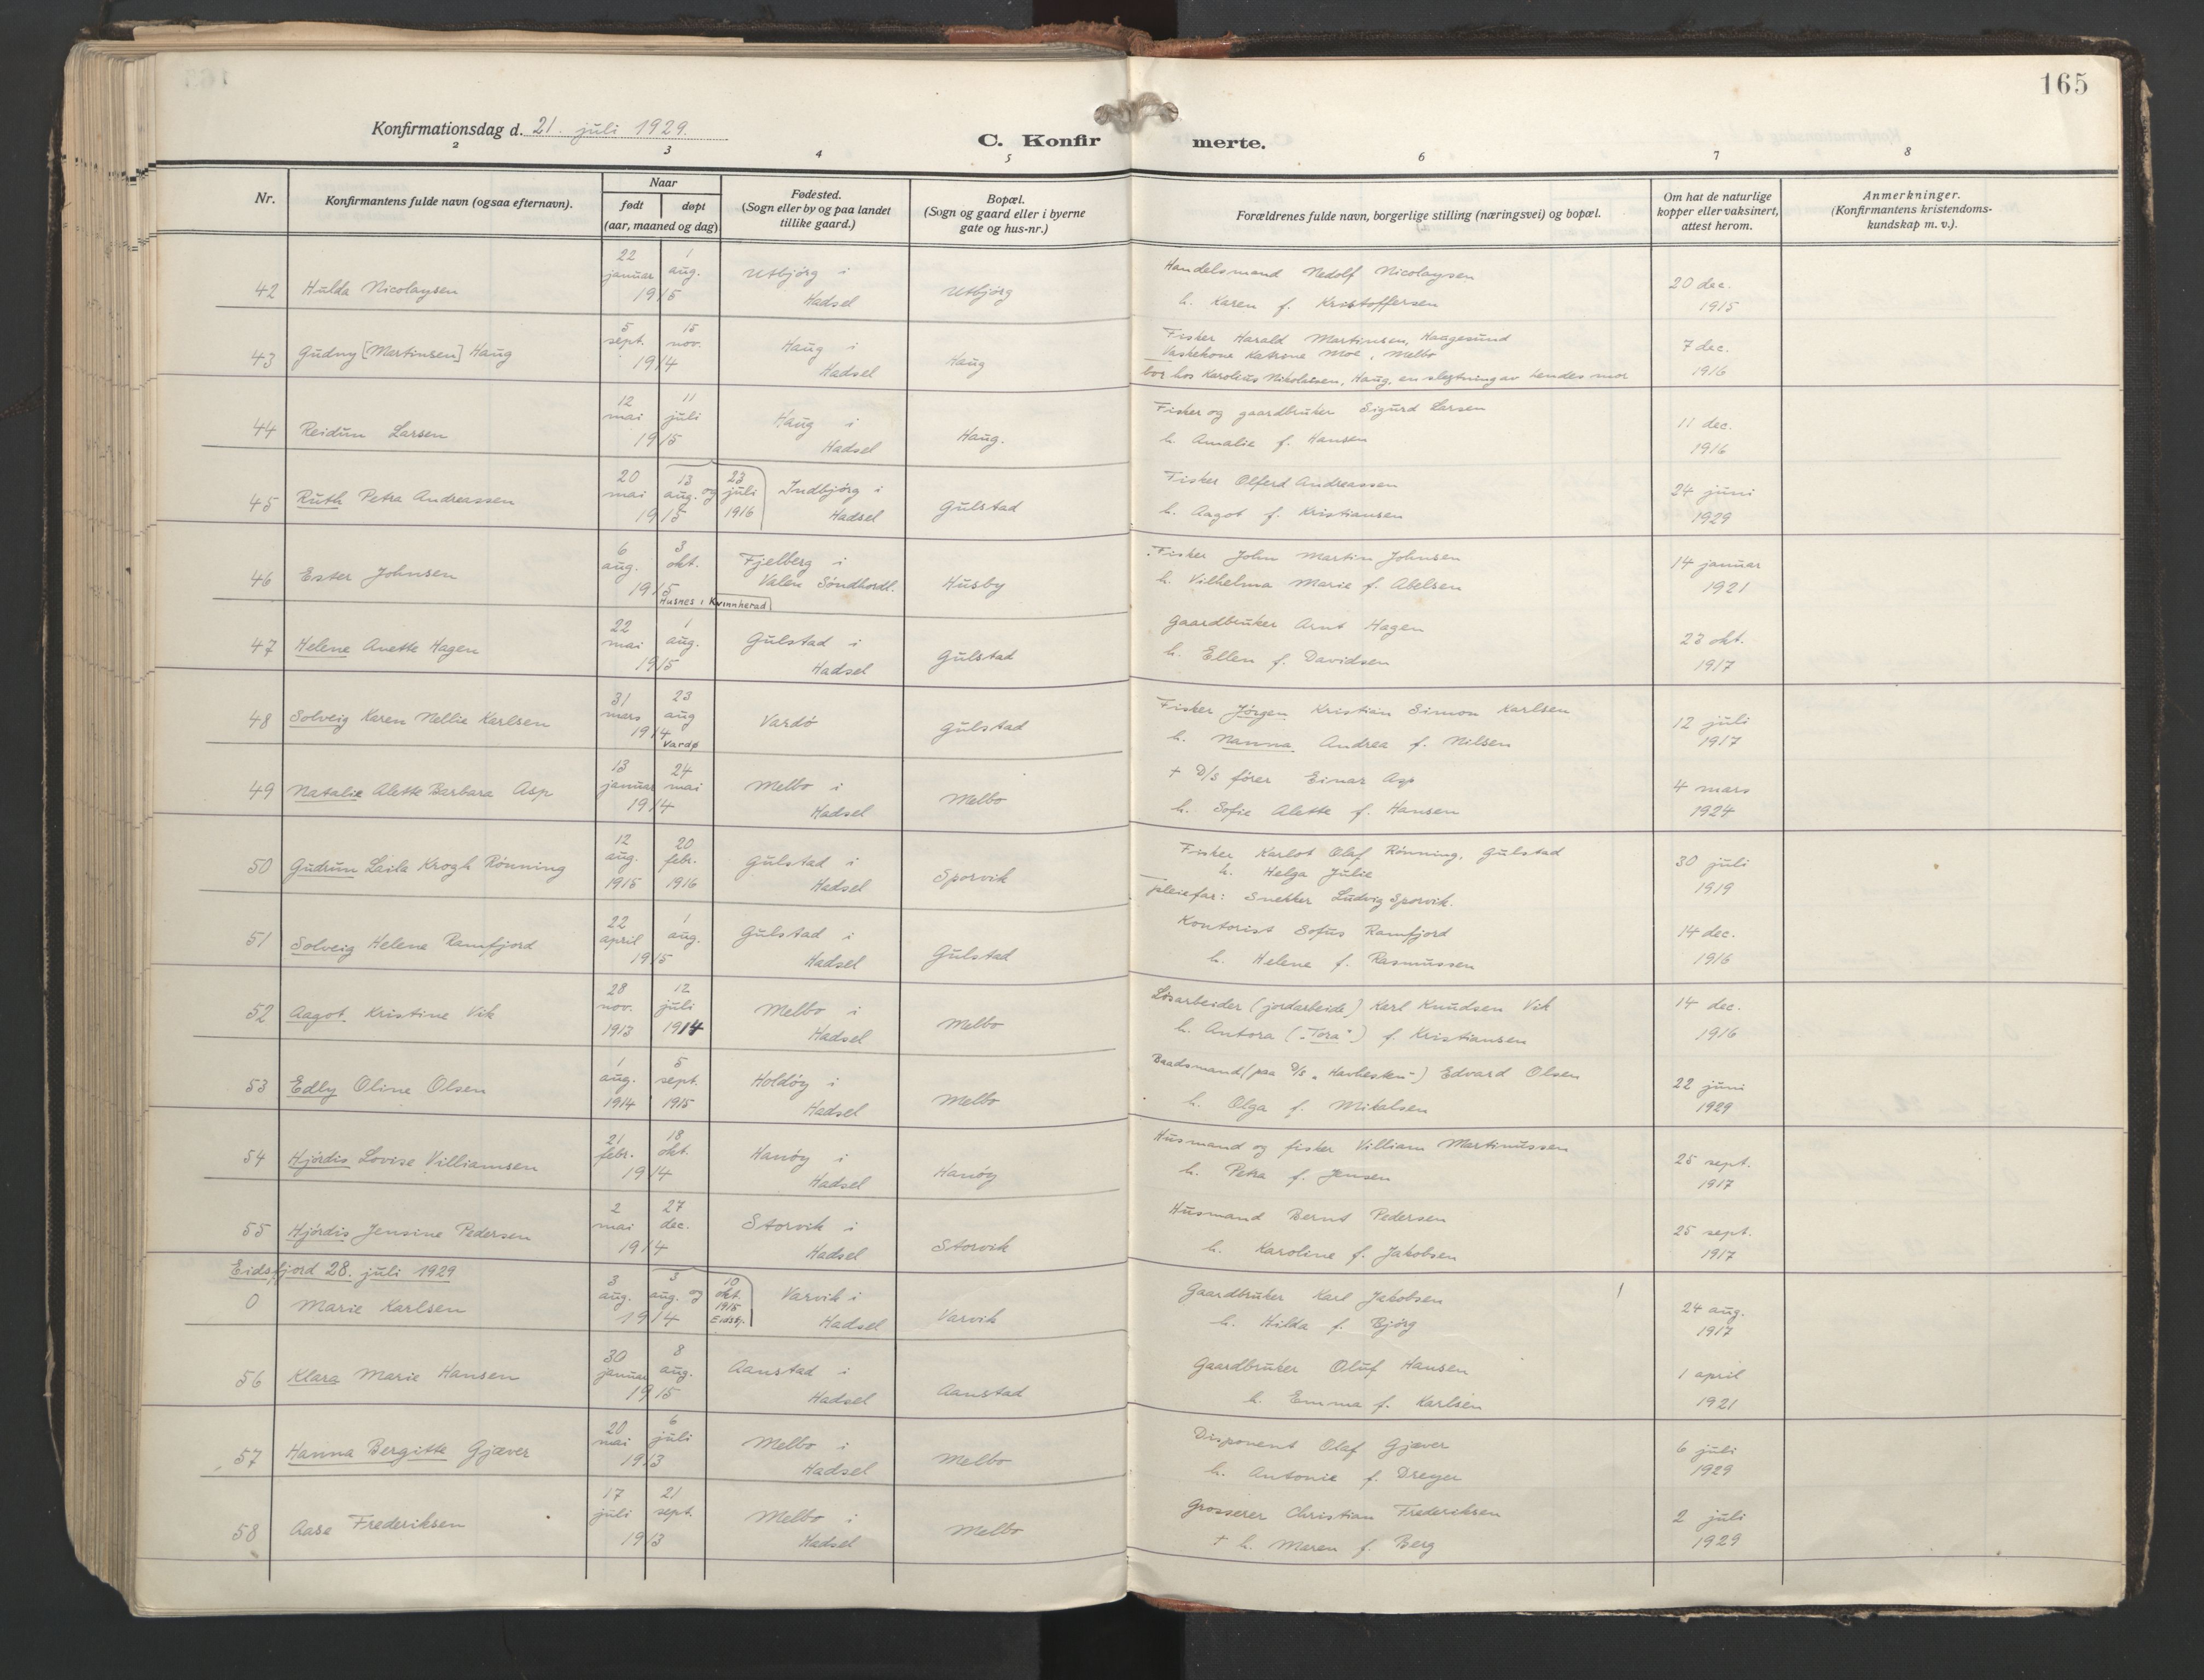 165
Konfirmationsdag d. 21. juli 1929.
C. Konfirmerte.
2 3 4 5 6 7 8
Nr.
Konfirmantens fulde navn (ogsaa efternavn).
Naar
født døpt
(aar, maaned og dag)
Fødested.
(Sogn eller by og paa landet
tillike gaard.)
Bopæl.
(Sogn og gaard eller i byerne
gate og hus-nr.)
Forældrenes fulde navn, borgerlige stilling (næringsvei) og bopæl.
Om hat de naturlige
kopper eller vaksinert,
attest herom.
Anmerkninger.
(Konfirmantens kristendoms-
kundskap m. v.).
22 januar 1 aug. Utbjørg i Handelsmand Nedolf Nicolaysen 20 dec.
42 Hulda Nicolaysen 1915 Hadsel Utbjørg h. Karen f. Kristoffersen 1915
5 sept. 15 nov. Haug i Fisker Harald Martinsen, Haugesund
43 Gudny [Martinsen] Haug 1914 Hadsel Haug Vaskekone Katrine Moe, Melbo 7 dec.
bor hos Karolius Nikolaisen, Haug, en slegtning av hendes mor 1916
12 mai 11 juli Haug i Fisker og gaardbruker Sigurd Larsen 11 dec.
44 Reidun Larsen 1915 Hadsel Haug. h. Amalie f. Hansen 1916
20 mai 13 aug. og 23 juli Indbjørg i Fisker Olferd Andreassen 24 juni
45 Ruth Petra Andreassen 1915 1916 Hadsel Gulstad h. Aagot f. Kristiansen 1929
6 aug. 3 okt. Fjelberg i Fisker John Martin Johnsen 14 januar
46 Ester Johnsen 1915 Valen Søndhordl. Husby h. Vilhelma Marie f. Abelsen 1921
Husnes i Kvinnherad
22 mai 1 aug. Gulstad i Gaardbruker Arnt Hagen 22 okt.
47 Helene Anette Hagen 1915 Hadsel Gulstad h. Ellen f. Davidsen 1917
31 mars 23 aug Vardö Fisker Jörgen Kristian Simon Karlsen 12 juli
48 Solveig Karen Nellie Karlsen 1914 Gulstad h. Nanna Andrea f. Nilsen 1917
Vardø
13 januar 24 mai Melbo i † D/s förer Einar Asp 4 mars
49 Natalie Alette Barbara Asp 1914 Hadsel Melbo h. Sofie Alette f. Hansen 1924
12 aug. 20 febr. Gulstad i Fisker Karlot Olaf Rønning, Gulstad 30 juli
50 Gudrun Laila Krogh Rönning 1915 1916 Hadsel Sporvik h. Helga Julie 1919
pleiefar: Snekker Ludvig Sporvik.
22 april 1 aug. Gulstad i Kontorist Sofus Ramfjord 14 dec.
51 Solveig Helene Ramfjord 1915 Hadsel Gulstad h. Helene f. Rasmussen 1916
28 nov. 12 juli Melbo i Lösarbeider (jordarbeide) Karl Knudsen Vik 14 dec.
52 Aagot Kristine Vik 1913 1914 Hadsel Melbo h. Antora ("Tora") f. Kristiansen 1916
1 aug. 5 sept. Holdöy i Baadsmand (paa D/s "Havhesten") Edvard Olsen 22 juni
53 Edly Oline Olsen 1914 1915 Hadsel Melbo h. Olga f. Mikalsen 1929
21 febr. 18 okt. Hanöy i Husmand og fisker Villiam Martinussen 25 sept.
54 Hjördis Lovise Villiamsen 1914 Hadsel Hanöy h. Petra f. Jensen 1917
2 mai 27 dec. Storvik i Husmand Bernt Pedersen 25 sept.
55 Hjördis Jensine Pedersen 1914 Hadsel Storvik h. Karoline f. Jakobsen 1917
Eidsfjord 28. juli 1929
3 aug. 3 aug. og 10 okt. 1915 Eidsfj. Varvik i Gaardbruker Karl Jakobsen 24 aug.
0 Marie Karlsen 1914 Hadsel Varvik h. Hilda f. Bjørg 1917
30 januar 8 aug. Aanstad i Gaardbruker Oluf Hansen 1 april
56 Klara Marie Hansen 1915 Hadsel Aanstad h. Emma f. Karlsen 1921
20 mai 6 juli Melbo i Disponent Olaf Gjæver 6 juli
57 Hanna Bergitte Gjæver 1913 Hadsel Melbo h. Antonie f. Dreyer 1929
17 juli 21 sept. Melbo i Grosserer Christian Frederiksen 2 juli
58 Aase Frederiksen 1913 Hadsel Melbo † h. Maren f. Berg 1929